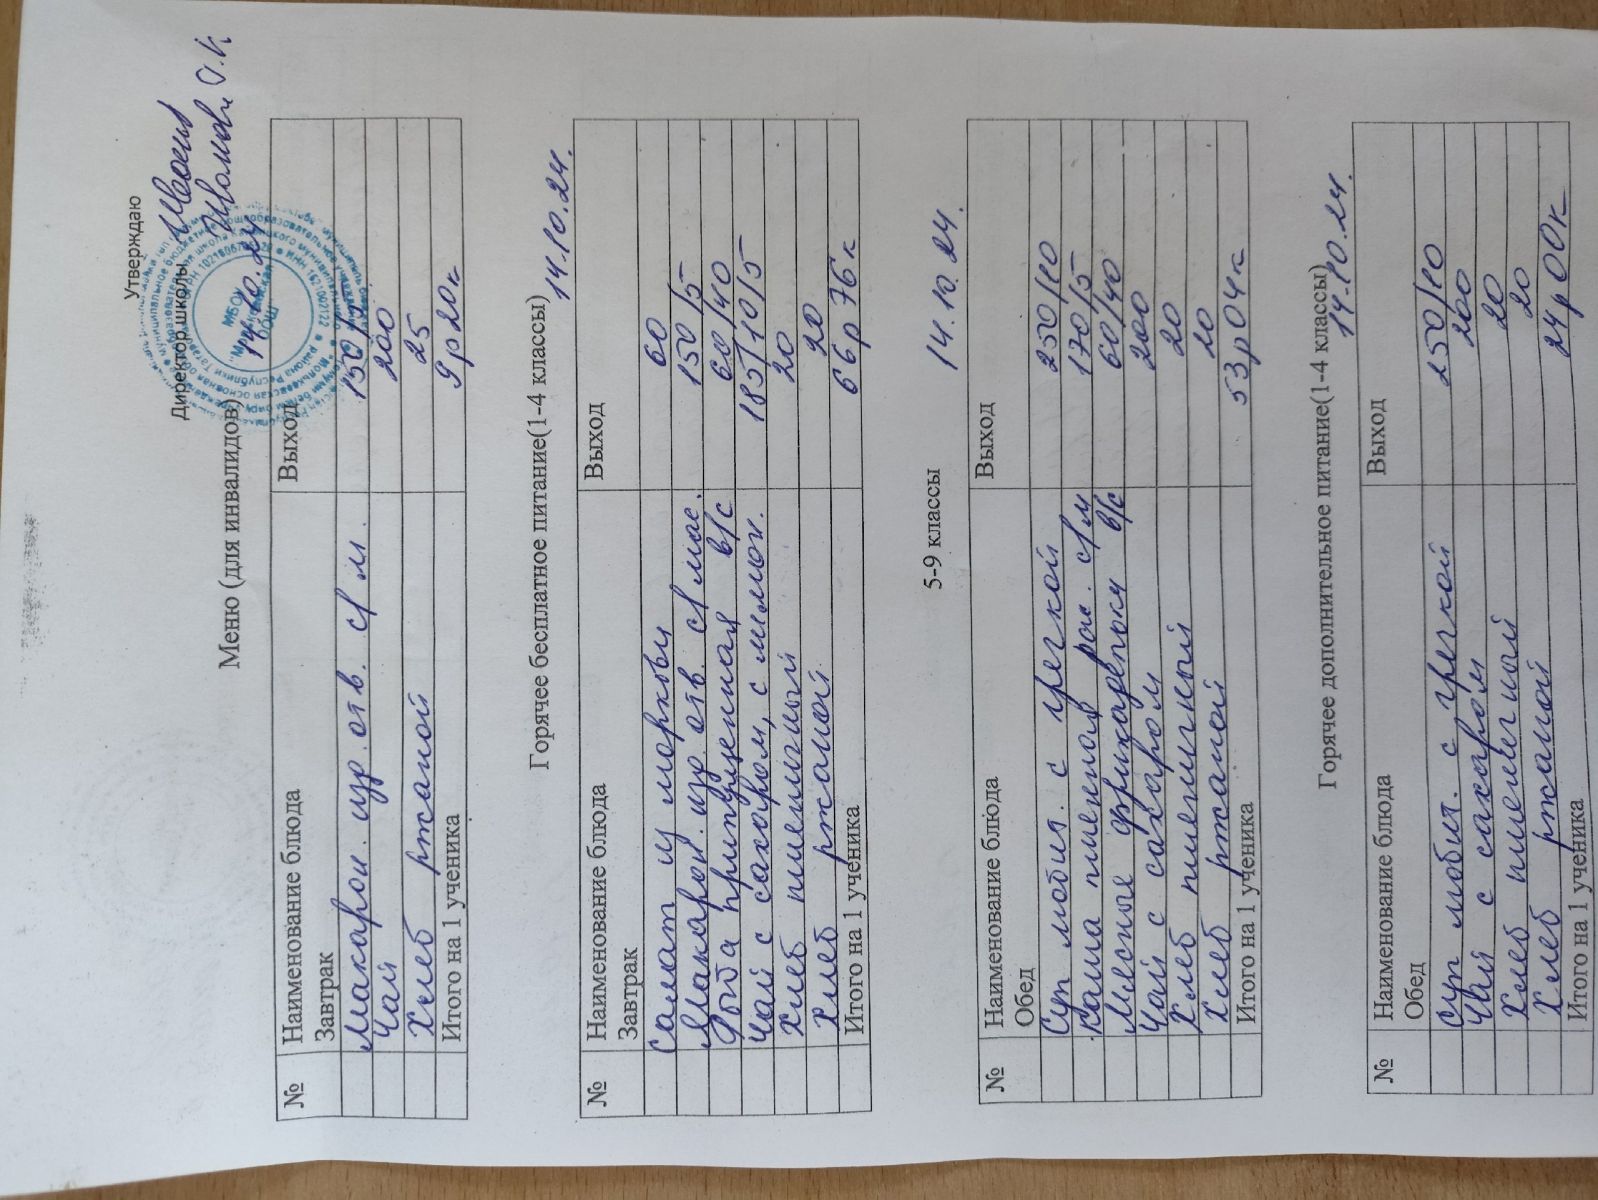 Утверждаю
Директор школы
14.10.24
Меню (для инвалидов)
№ Наименование блюда Выход
Завтрак
Макарон. изр. отв. с/м. 150/5
Чай 200
Хлеб ржаной 25
Итого на 1 ученика 9р20к
Горячее бесплатное питание(1-4 классы)
14.10.24.
№ Наименование блюда Выход
Завтрак
Салат из моркови 60
Макарон. изр. отв. с/мас. 150/5
Рыба припущенная в/с 60/40
Чай с сахаром, с лимон. 185/10/5
Хлеб пшеничный 20
Хлеб ржаной 20
Итого на 1 ученика 66р76к
5-9 классы 14.10.24.
№ Наименование блюда Выход
Обед
Суп любит. с гречкой 250/10
Каша пшенная рас. с/м 170/5
Мясные фрикадельки в/с 60/40
Чай с сахаром 200
Хлеб пшеничный 20
Хлеб ржаной 20
Итого на 1 ученика 53р04к
Горячее дополнительное питание(1-4 классы)
14.10.24.
№ Наименование блюда Выход
Обед
Суп любит. с гречкой 250/10
Чай с сахаром 200
Хлеб пшеничный 20
Хлеб ржаной 20
Итого на 1 ученика 24р00к